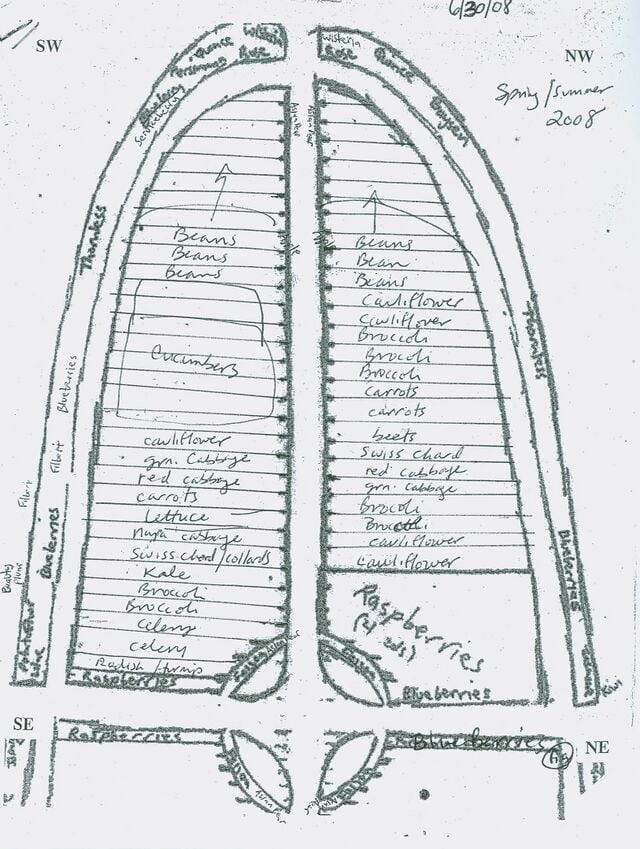 6/30/08
SW
NW
Spring/Summer
2008
Wisteria
Rose
Quince
Wisteria
Rose
Quince
Persimmon
Serviceberry
Thornless
Thornless
Asian Pear
Asian Pear
Beans
Beans
Beans
Cucumbers
cauliflower
grn. Cabbage
red cabbage
carrots
Lettuce
Napa cabbage
Swiss chard/collards
Kale
Broccoli
Broccoli
celery
celery
Radish/turnip
Raspberries
Beans
Bean
Beans
Cauliflower
Cauliflower
Broccoli
Broccoli
Broccoli
carrots
carrots
beets
Swiss chard
red cabbage
grn. cabbage
Broccoli
Broccoli
cauliflower
cauliflower
Raspberries
Blueberries
Blueberries
Filbert
Filbert
Blueberries
Beauty
Plum
Blueberries
Kiwi
SE
NE
Raspberries
Blueberries